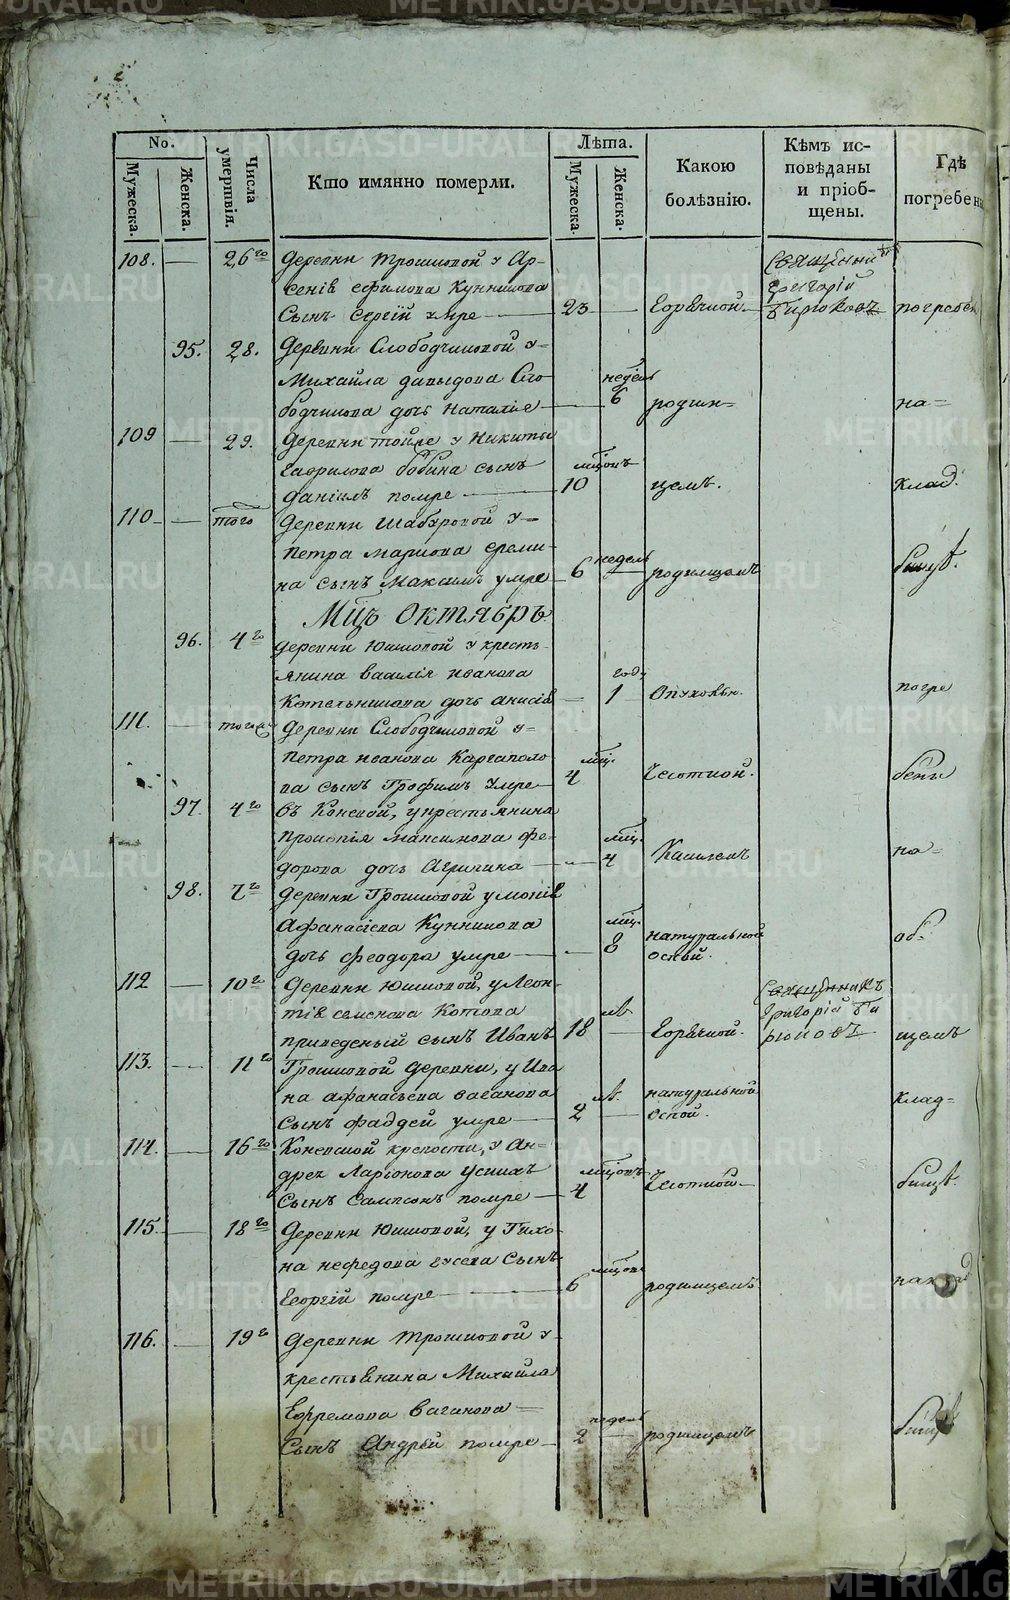 METRIKI.GASO-URAL.RU
No.
Мужеска.
Женска.
Числа умертвія.
Кто имянно померли.
Лѣта.
Мужеска.
Женска.
Какою болѣзнію.
Кѣмъ исповѣданы и пріобщены.
Гдѣ погребены
108. — 26го Деревни Трошковой у Ар-
сенія ефимова Кунникова
Сынъ Сергій умре — 23 — Горячкой. Григорій Бирюковъ погребен
95. 28. Деревни Слободчиковой у
Михайла давыдова Сло
бодчикова дочь наталіе — недѣль 6 родим= на=
109 — 29. Деревни у Никиты
гаврилова бабина сынъ
даніилъ помре — мцовъ 10 цемъ. клад.
110 — того Деревни Шабуровой у=
петра маркова ереми-
на сынъ Максимъ умре — 6 недель родимцомъ бищѣ.
Мцъ Октябрь
96. 4го деревни Юшковой у кресть-
янина василія иванова
Котельникова дочь анисія — годъ 1 Опухолью. погре
111. — того Деревни Слободчиковой у=
петра иванова Каргаполо
ва сынъ Трофимъ умре мцъ. 4 Чесоткой. бены
97. 4го въ Коневой, у крестьянина
прокопія максимова фе-
дорова дочь Агрипина — мцъ. 4 Кашлемъ на=
98. 7го деревни Трошковой у
Афанасіева Кунникова
дочь феодора умре — мцъ. 8 натуральной оспой. об-
112 — 10го Деревни Юшковой, у Леон-
тія семенова Котова
приведеный сынъ Иванъ 18 — Горячкой. Священникъ Григорій Би рюковъ щемъ
113. — 11го Трошковой деревни, у Ива
на афанасьева ваганова
Сынъ фаддей умре — 2 натуральной оспой. клад=
114. — 16го Коневской крепости, у Ан-
дрея Ларіонова
Сынъ Сампсонъ помре — мцовъ 4 Чесоткой — бищѣ.
115. — 18го Деревни Юшковой, у Тихо-
на нефедова гусева Сынъ
Георгій помре — 6 мцовъ родимцемъ
116. — 19го Деревни Трошковой у
крестьянина Михайла
Ефремова Ваганова —
Сынъ Андрей помре — 2 недель родимцомъ бищѣ